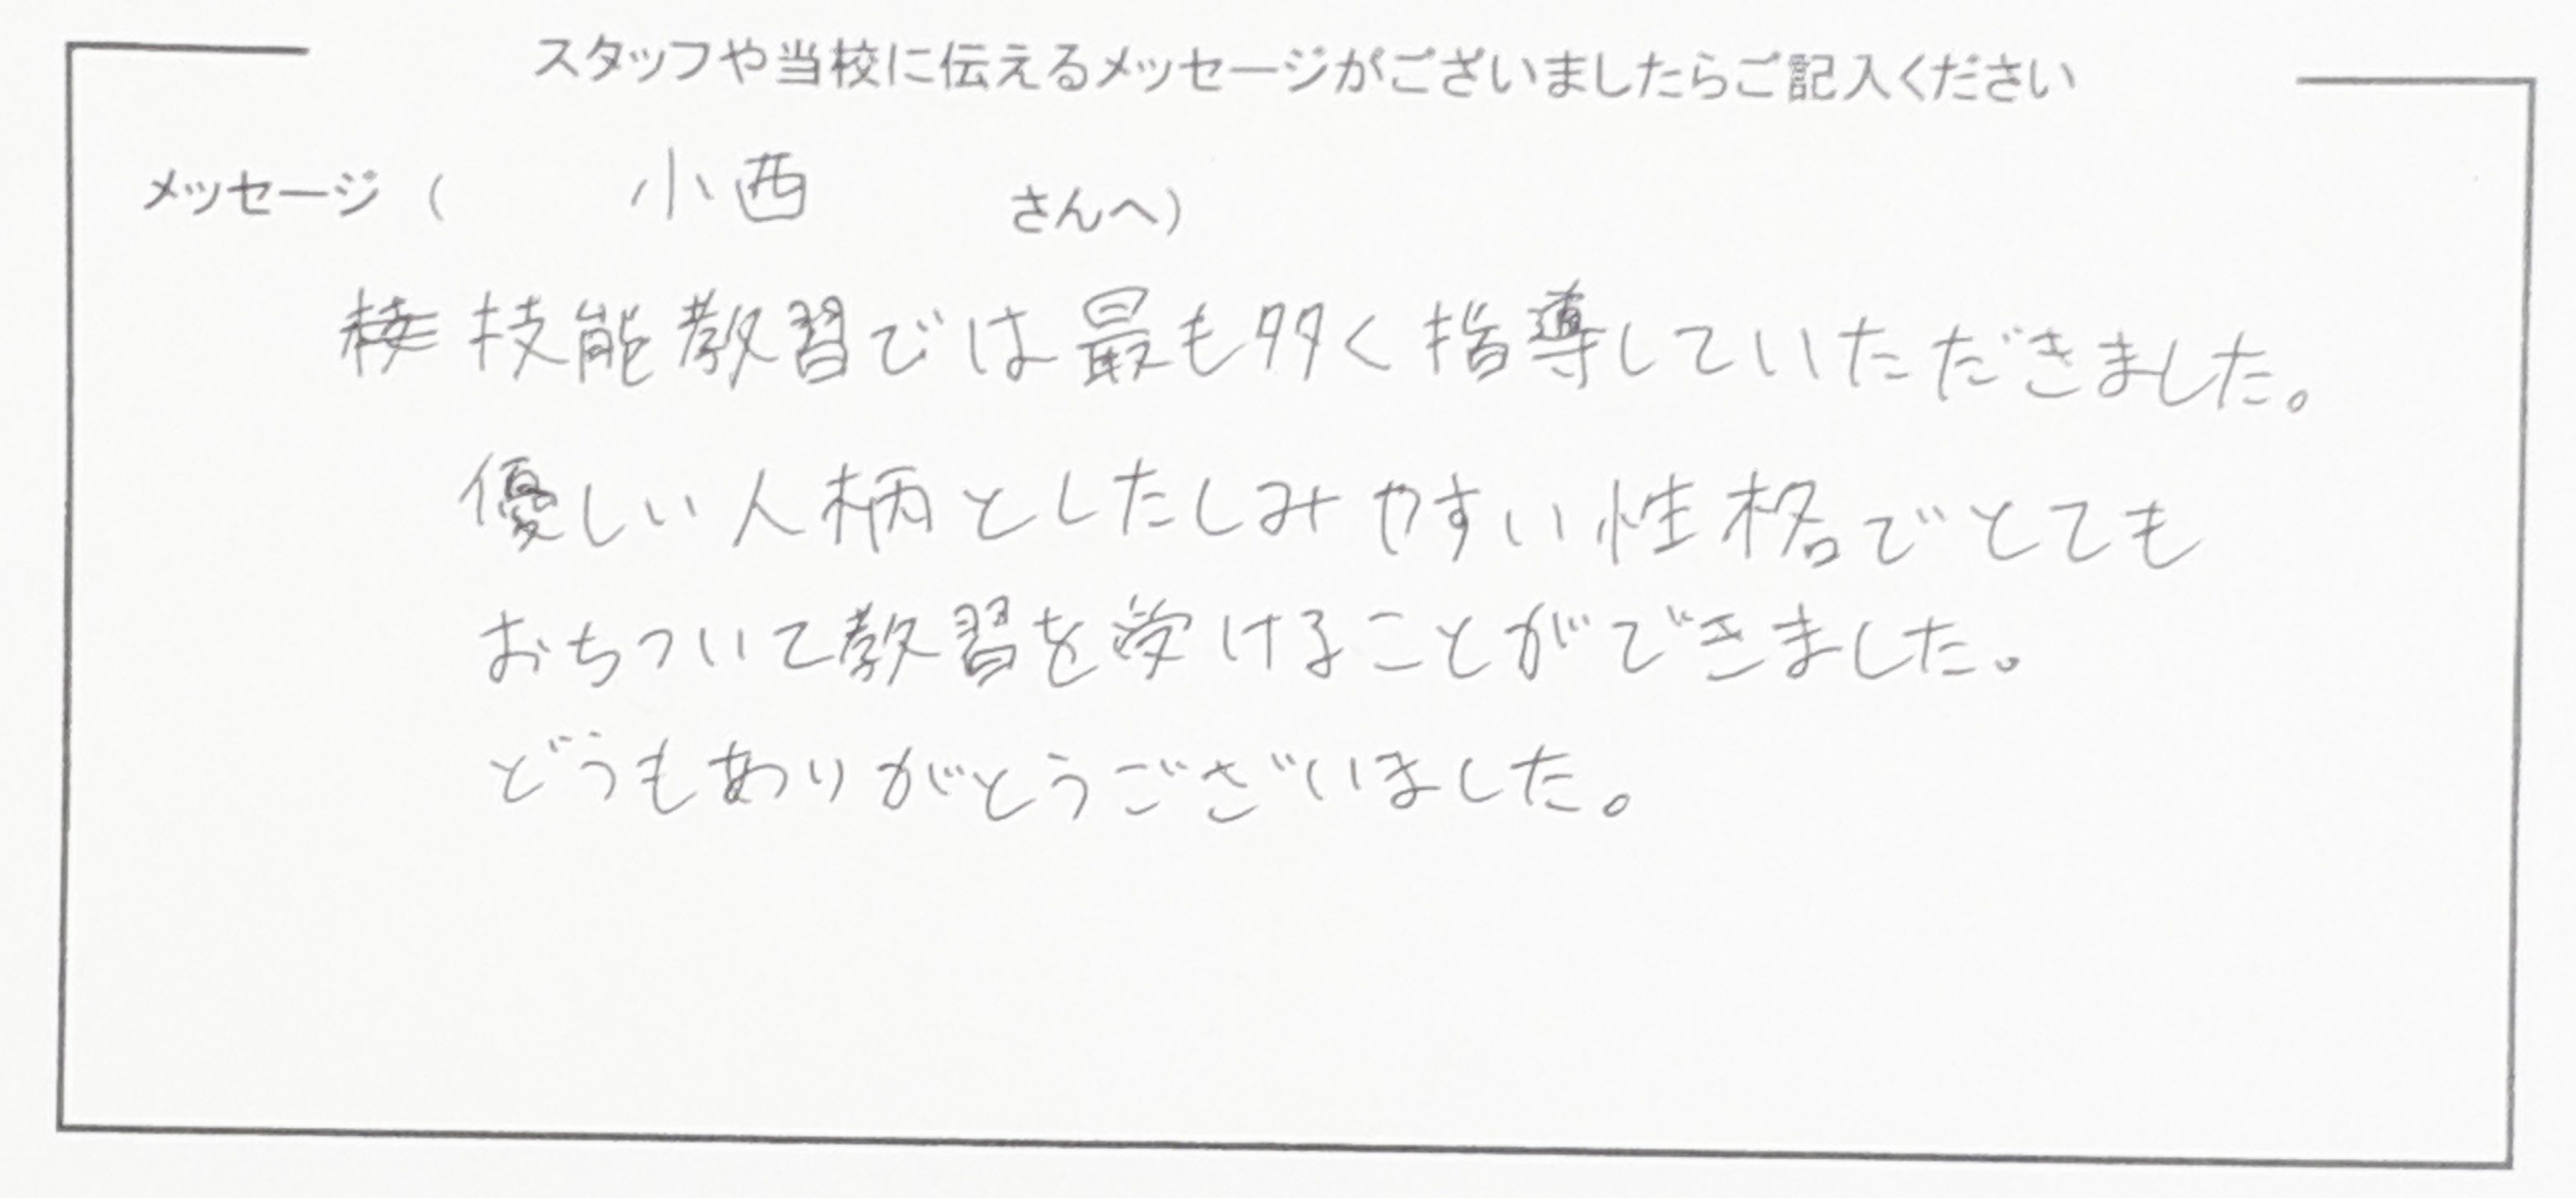 スタッフや当校に伝えるメッセージがございましたらご記入ください
メッセージ ( 小西 さんへ)
技能教習では最も多く指導していただきました。
優しい人柄としたしみやすい性格でとても
おちついて教習を受けることができました。
どうもありがとうございました。